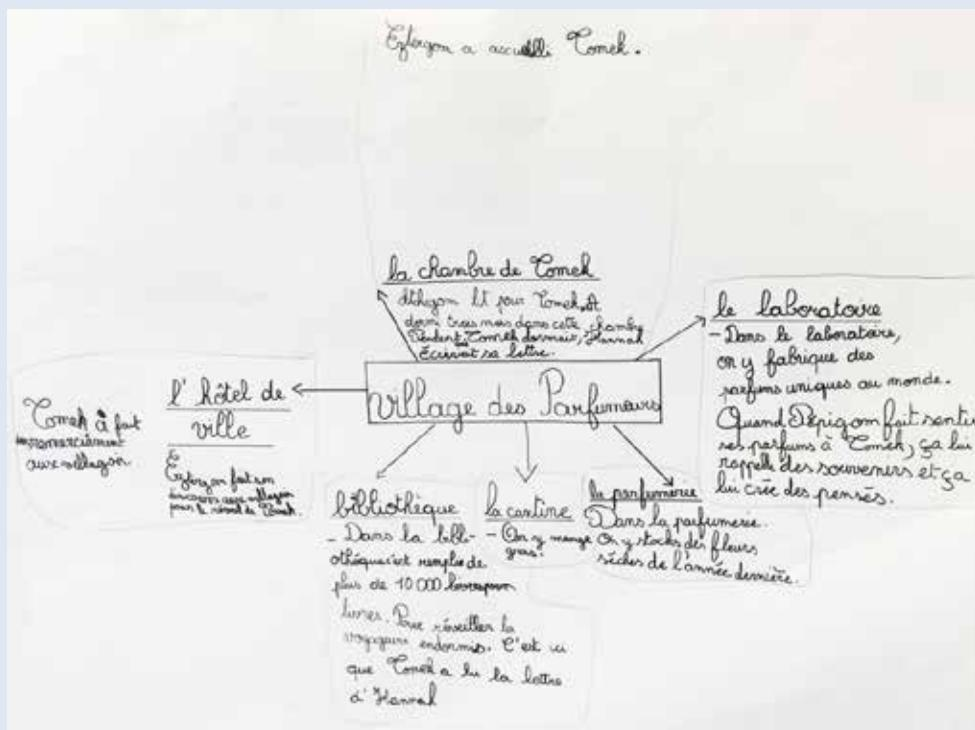 Eztergom a accueilli Tomek.
la chambre de Tomek
lit pour Tomek,
dormi trois mois dans cette chambre
Pendent que Tomek dormait, Hannah
Écrivait sa lettre.
le laboratoire
- Dans le laboratoire,
on y fabrique des
parfums uniques au monde.
Quand Pépigom fait sentir
ses parfums à Tomek, ça lui
rappelle des souveners et ça
lui crée des pensés.
village des Parfumeurs
l'hôtel de
ville
Eztergom fait son
aux
pour le réveil de Tomek.
Tomek à fait
un remerciement
aux
bibliothèque
- Dans la bibli-
othèque c'est remplie de
plus de 10 000
livres. Pour réveiller la
voyageurs endormis. C'est ici
que Tomek a lu la lettre
d'Hannah
la cantine
- On y mange
gras.
la parfumerie
Dans la parfumerie.
On y stocks des fleurs
sèches de l'année dernière.